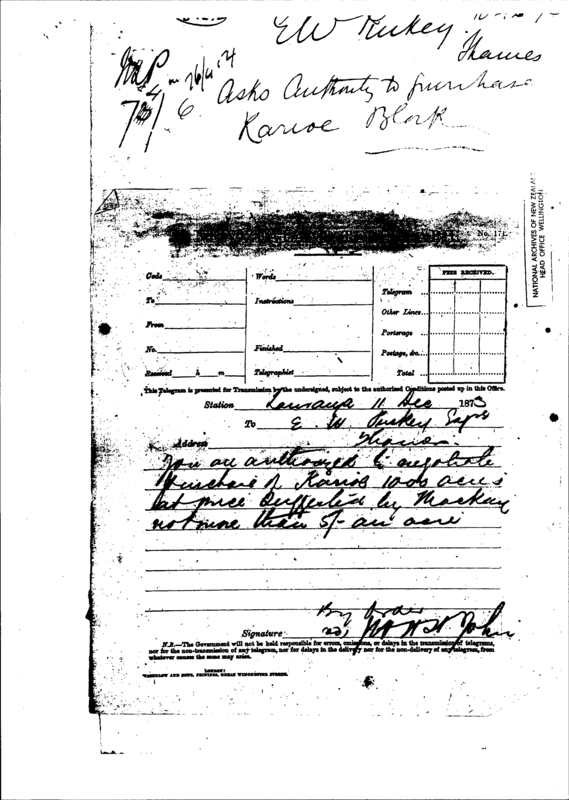 EW Puckey
Thames
Asks Authority to purchase
Karioe Block
NATIONAL ARCHIVES OF NEW ZEALAND
HEAD OFFICE WELLINGTON
No.
Code
Words
FEES RECEIVED.
To
Instructions
Telegram
Other Lines
From
Porterage
No.
Finished
Postage, &c.
Received h m
Telegraphist
Total
This Telegram is presented for Transmission by the undersigned, subject to the authorized Conditions posted up in this Office.
Station Tauranga 11 Dec 1873
To E. W. Puckey Esqre
Address Thames
You are authorized to negotiate
Purchase of Karioe 1000 acres
at price suggested by Mackay
not more than 5/- an acre
By order
Signature
N.B.—The Government will not be held responsible for errors, omissions, or delays in the transmission of telegrams,
nor for the non-transmission of any telegram, nor for delays in the delivery nor for the non-delivery of any telegram, from
whatever causes the same may arise.
LONDON:
WATERLOW AND SONS, PRINTERS, GREAT WINCHESTER STREET.